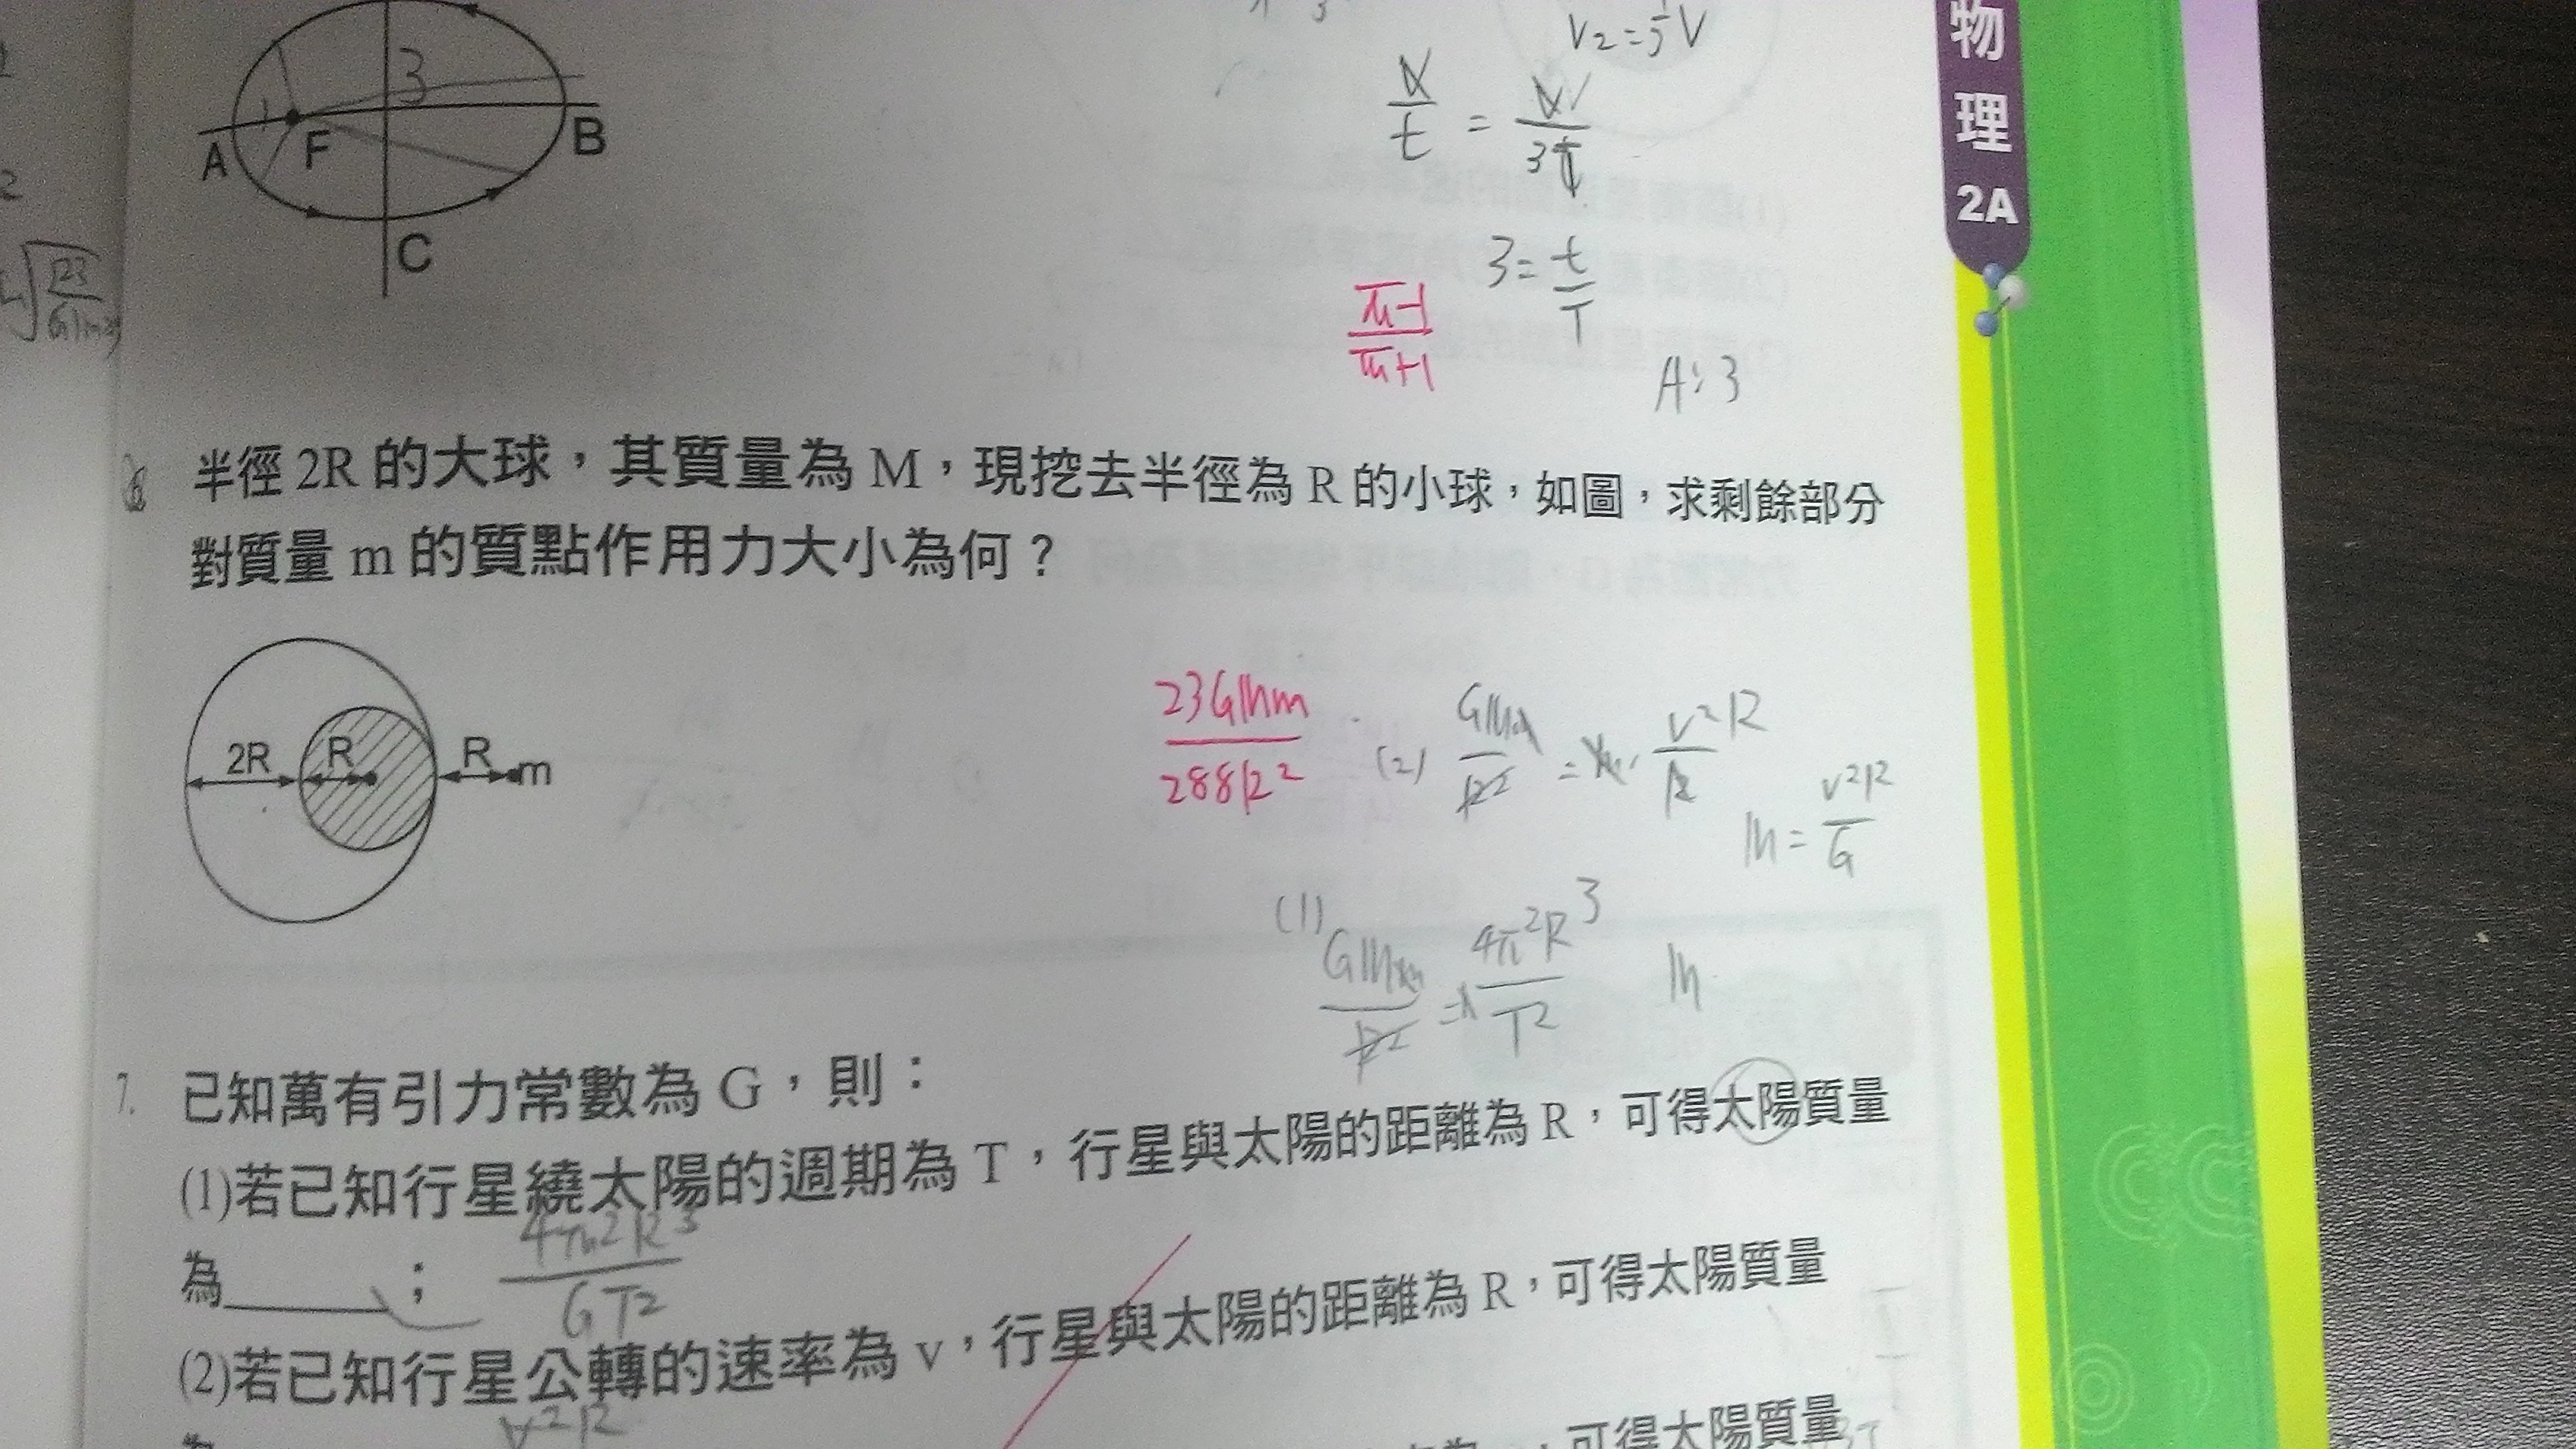 物理 2A
V₂=
3
A
F
B
C
3=t/T
A:3
6. 半徑 2R 的大球，其質量為 M，現挖去半徑為 R 的小球，如圖，求剩餘部分
對質量 m 的質點作用力大小為何？
2R
R
R
m
23GMm/288R²
(2)
M=v²R/G
(1)
4π²R³/T²
M
7. 已知萬有引力常數為 G，則：
(1)若已知行星繞太陽的週期為 T，行星與太陽的距離為 R，可得太陽質量
為______；
4π²R³/GT²
(2)若已知行星公轉的速率為 v，行星與太陽的距離為 R，可得太陽質量
v²R
，可得太陽質量